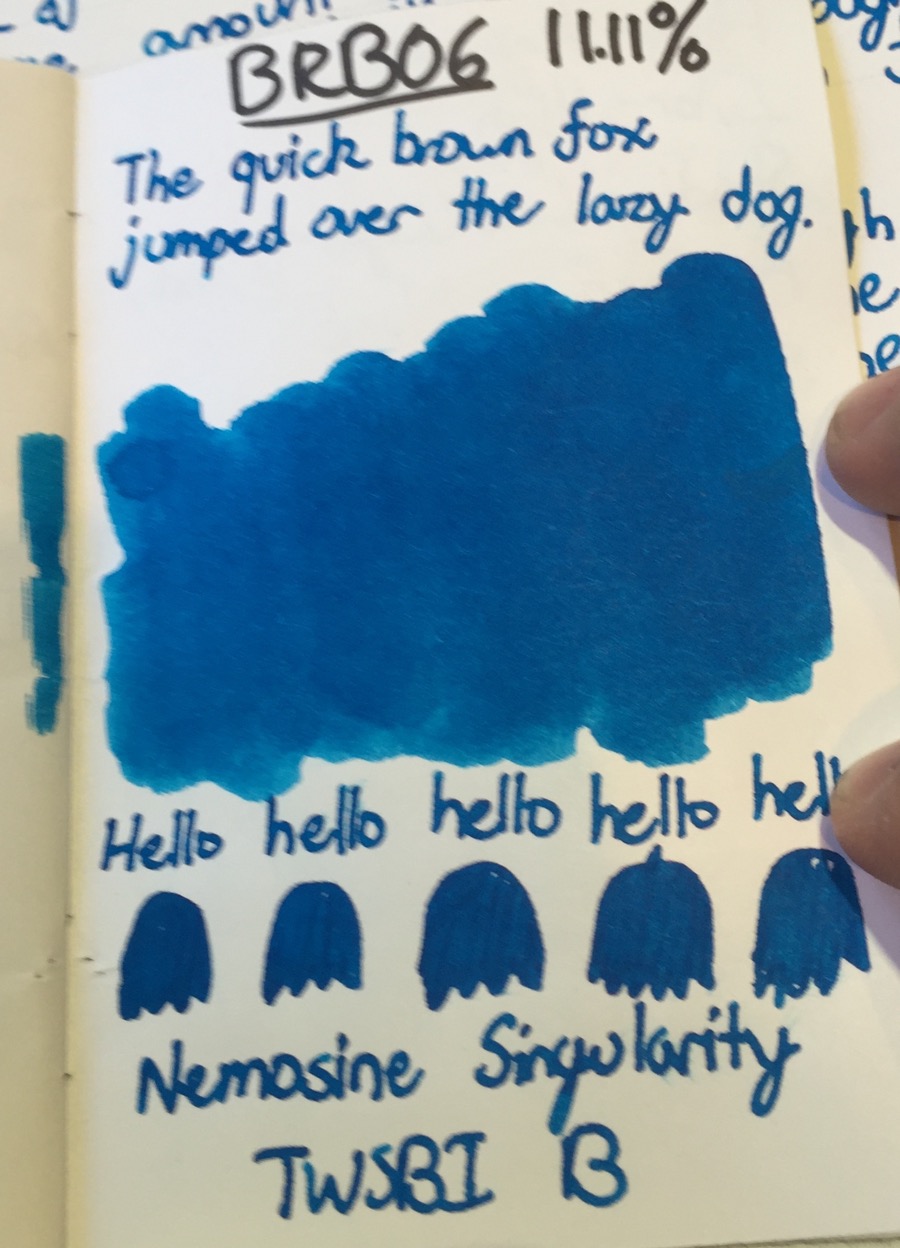 amount
BRB06 11.11%
The quick brown fox
jumped over the lazy dog.
Hello hello hello hello hell
Nemosine Singularity
TWSBI B